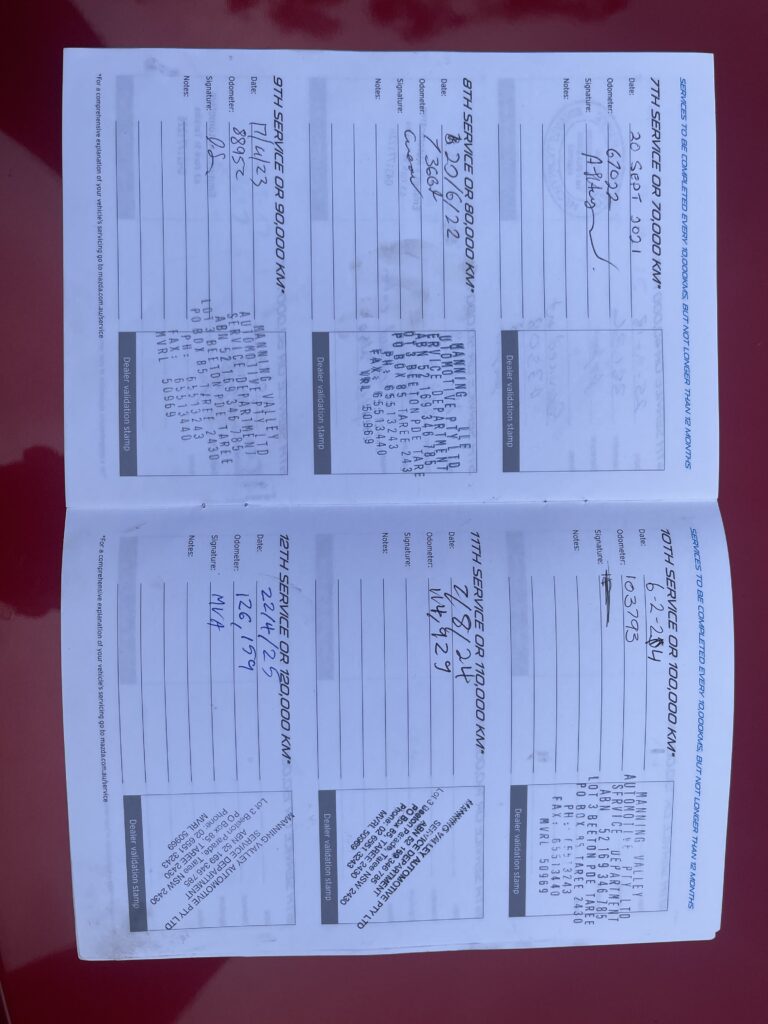 SERVICES TO BE COMPLETED EVERY 10,000KMS, BUT NOT LONGER THAN 12 MONTHS
7TH SERVICE OR 70,000 KM*
Date: 20 SEPT 2021
Odometer: 67022
Signature:
Notes:
Dealer validation stamp
8TH SERVICE OR 80,000 KM*
Date: 20/6/22
Odometer:
Signature:
Notes:
MANNING
AUTOMOTIVE PTY LTD
SERVICE DEPARTMENT
ABN 52 169 346 785
LOT 3 BEETON PDE TAREE
PO BOX 85 TAREE 243
PH: 65513243
FAX: 65513440
MVRL 50969
Dealer validation stamp
9TH SERVICE OR 90,000 KM*
Date: 17/4/23
Odometer: 88952
Signature:
Notes:
MANNING VALLEY
AUTOMOTIVE PTY LTD
SERVICE DEPARTMENT
ABN 52 169 346 785
LOT 3 BEETON PDE TAREE
PO BOX 85 TAREE 2430
PH: 65513243
FAX: 65513440
MVRL 50969
Dealer validation stamp
*For a comprehensive explanation of your vehicle's servicing go to mazda.com.au/service
SERVICES TO BE COMPLETED EVERY 10,000KMS, BUT NOT LONGER THAN 12 MONTHS
10TH SERVICE OR 100,000 KM*
Date: 6-2-24
Odometer: 103793
Signature:
Notes:
MANNING VALLEY
AUTOMOTIVE PTY LTD
SERVICE DEPARTMENT
ABN 52 169 346 785
LOT 3 BEETON PDE TAREE
PO BOX 95 TAREE 2430
PH: 65513243
FAX: 65513440
MVRL 50969
Dealer validation stamp
11TH SERVICE OR 110,000 KM*
Date: 2/8/24
Odometer: 114,929
Signature:
Notes:
MANNING VALLEY AUTOMOTIVE PTY LTD
SERVICE DEPARTMENT
ABN 52 169 346 785
Lot 3 Beeton Parade, Taree NSW 2430
PO Box 85 TAREE 2430
Phone: 02 6551 3243
MVRL 50969
Dealer validation stamp
12TH SERVICE OR 120,000 KM*
Date: 22/4/25
Odometer: 126,159
Signature: MVA
Notes:
MANNING VALLEY AUTOMOTIVE PTY LTD
SERVICE DEPARTMENT
ABN 52 169 346 785
Lot 3 Beeton Parade, Taree NSW 2430
PO Box 85 TAREE 2430
Phone: 02 6551 3243
MVRL 50969
Dealer validation stamp
*For a comprehensive explanation of your vehicle's servicing go to mazda.com.au/service